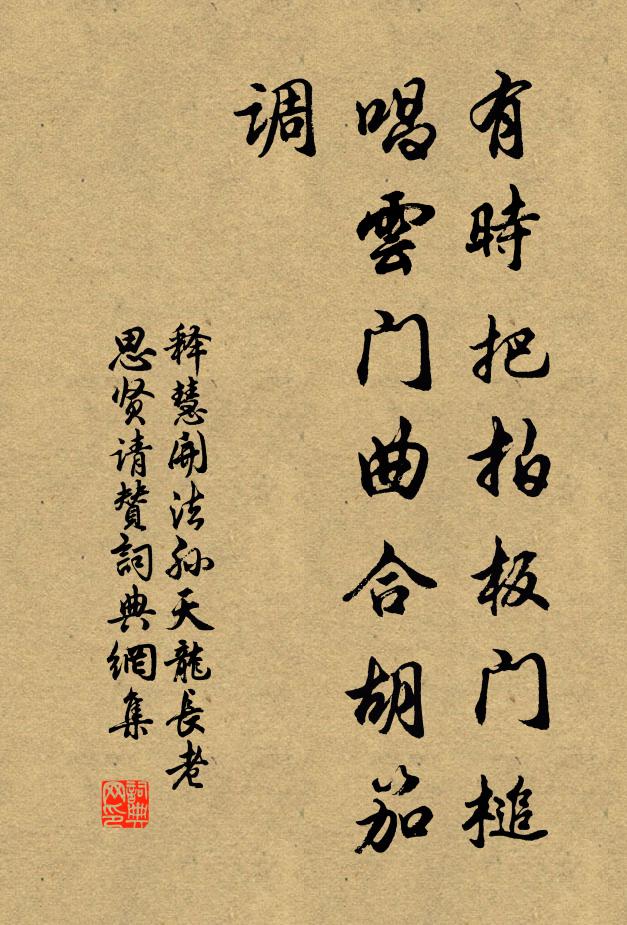 有時把拍板门槌
唱雲门曲合胡笳
调
释慧開法孙天龍長老
思贤请贊詞典網集
詞典网印